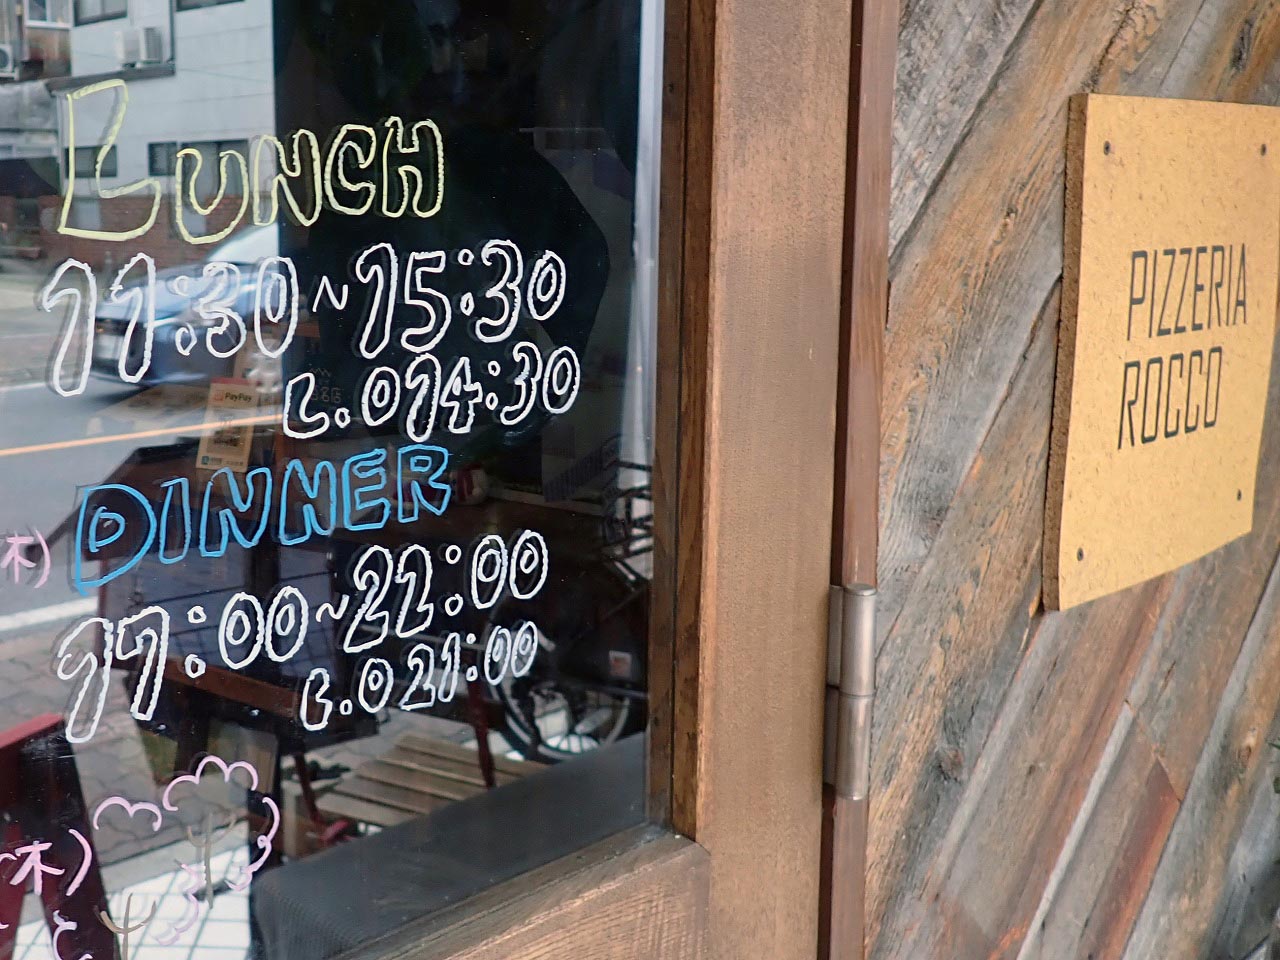 LUNCH
11:30~15:30
L.O14:30
DINNER
17:00~22:00
L.O21:00
木)
(木)
と
PayPay
PIZZERIA
ROCCO